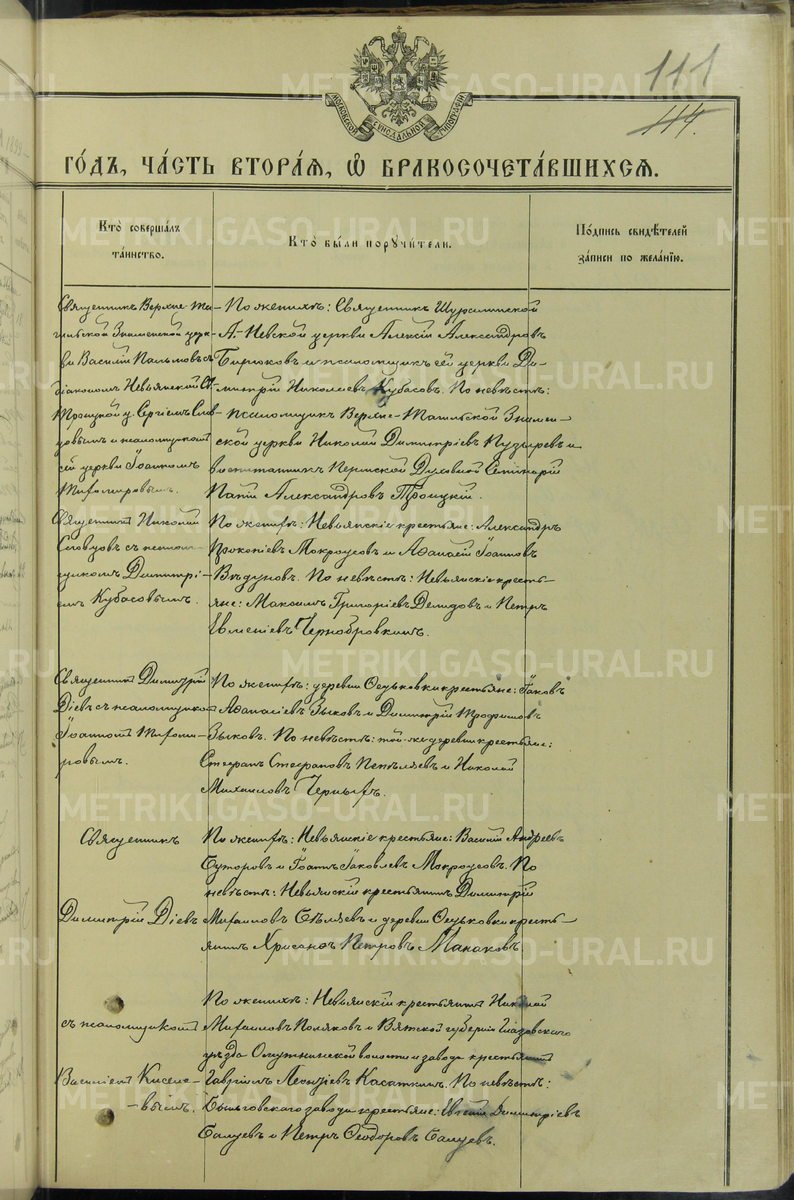 111
114.
МОСКОВСКОЙ СѴНОДАЛЬНОЙ ТИПОГРАФІИ
ГО́ДЪ, ЧА́СТЬ ВТОРА́Я, Ѡ҆ БРАКОСОЧЕТА́ВШИХСЯ.
Кто̀ соверша́лъ
та́инство.
Кто̀ бы́ли порꙋчи́тели.
По́дпись свидѣ́телей
за́писи по жела́нїю.
Священникъ Верхне-Та-
гильской Знаменской церк-
ви Василій Пальмовъ съ
діакономъ Невьянской Св.
Троицкой ц. Сергіемъ Слов-
цовымъ и псаломщикомъ
сей церкви Іоанномъ
Тихомировымъ.
По женихѣ: Священникъ Шуралинской
А.-Невской церкви Алексій Александровъ
Бирюковъ и псаломщикъ сей церкви Ди-
митрій Николаевъ Кубасовъ. По невѣстѣ:
псаломщикъ Верхне-Тагильской Знамен-
ской церкви Николай Димитріевъ Пузыревъ и
воспитанникъ Пермской Духовной Семинаріи
Александровъ Троицкій.
Священникъ Николай
Словцовъ съ псалом-
щикомъ Димитрі-
емъ Кубасовымъ.
По женихѣ: Невьянскіе крестьяне: Александръ
Прокопіевъ Мокроусовъ и Аѳанасій Іоанновъ
Вѣдуновъ. По невѣстѣ: Невьянскіе кресть-
яне: Максимъ Григоріевъ Демидовъ и Петръ
Евменіевъ Чернобровкинъ.
Священникъ Димитрій
Діевъ съ псаломщикомъ
Іоанномъ Тихоми-
ровымъ.
По женихѣ: деревни Осуьковки крестьяне: Іаковъ
Аѳанасіевъ Зыковъ и Димитрій Трофимовъ
Зыковъ. По невѣстѣ: той-же деревни крестьяне:
Стефанъ Стефановъ Пепеляевъ и Николай
Михаиловъ Черныхъ.
Священникъ
Димитрій Діевъ
съ псаломщикомъ
Василіемъ Киселе-
вымъ.
По женихѣ: Невьянскіе крестьяне: Василій Андреевъ
Буторовъ и Іоаннъ Іаковлевъ Мокроусовъ. По
невѣстѣ: Невьянскій крестьянинъ Димитрій
Михаиловъ Бѣляевъ и деревни Осуьковки кресть-
янинъ Хрисанѳъ Петровъ Манаковъ.
По женихѣ: Невьянскій крестьянинъ Николай
Михаиловъ Поляковъ и Вятской губерніи Глазовскаго
уѣзда Омутнинской волости и завода крестьянинъ
Гавріилъ Леонтіевъ Касаткинъ. По невѣстѣ:
Быньговскаго завода крестьяне: Евгеній Димитріевъ
Балуевъ и Петръ Ѳеодоровъ Балуевъ.
METRIKI.GASO-URAL.RU